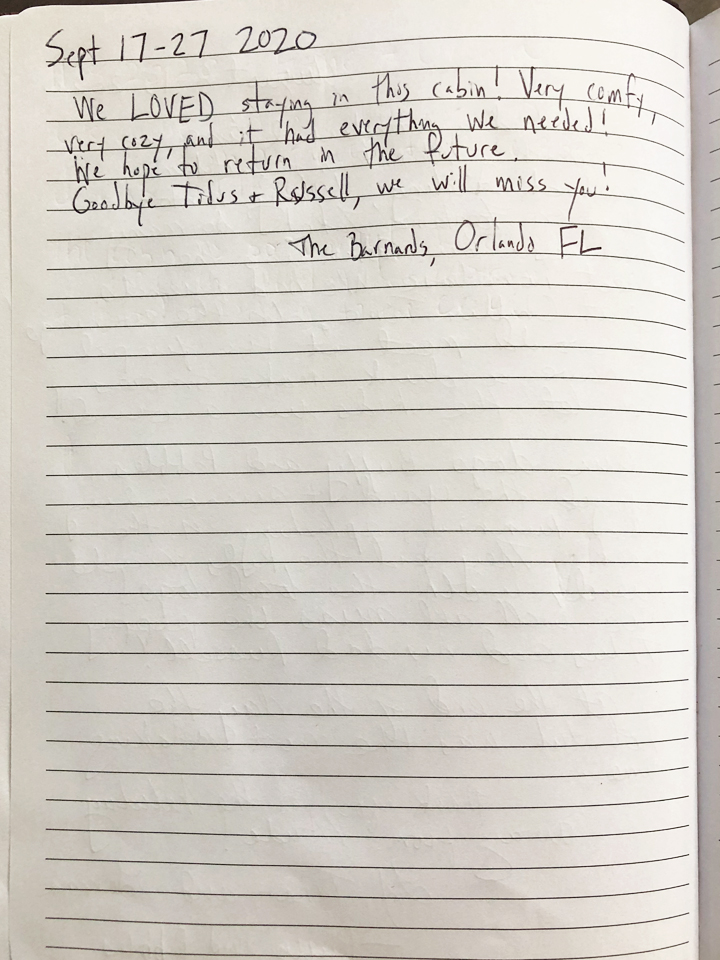 Sept 17-27 2020
We LOVED staying in this cabin! Very comfy,
very cozy, and it had everything we needed!
We hope to return in the future.
Goodbye Tidus + Russell, we will miss you!
The Barnards, Orlando FL